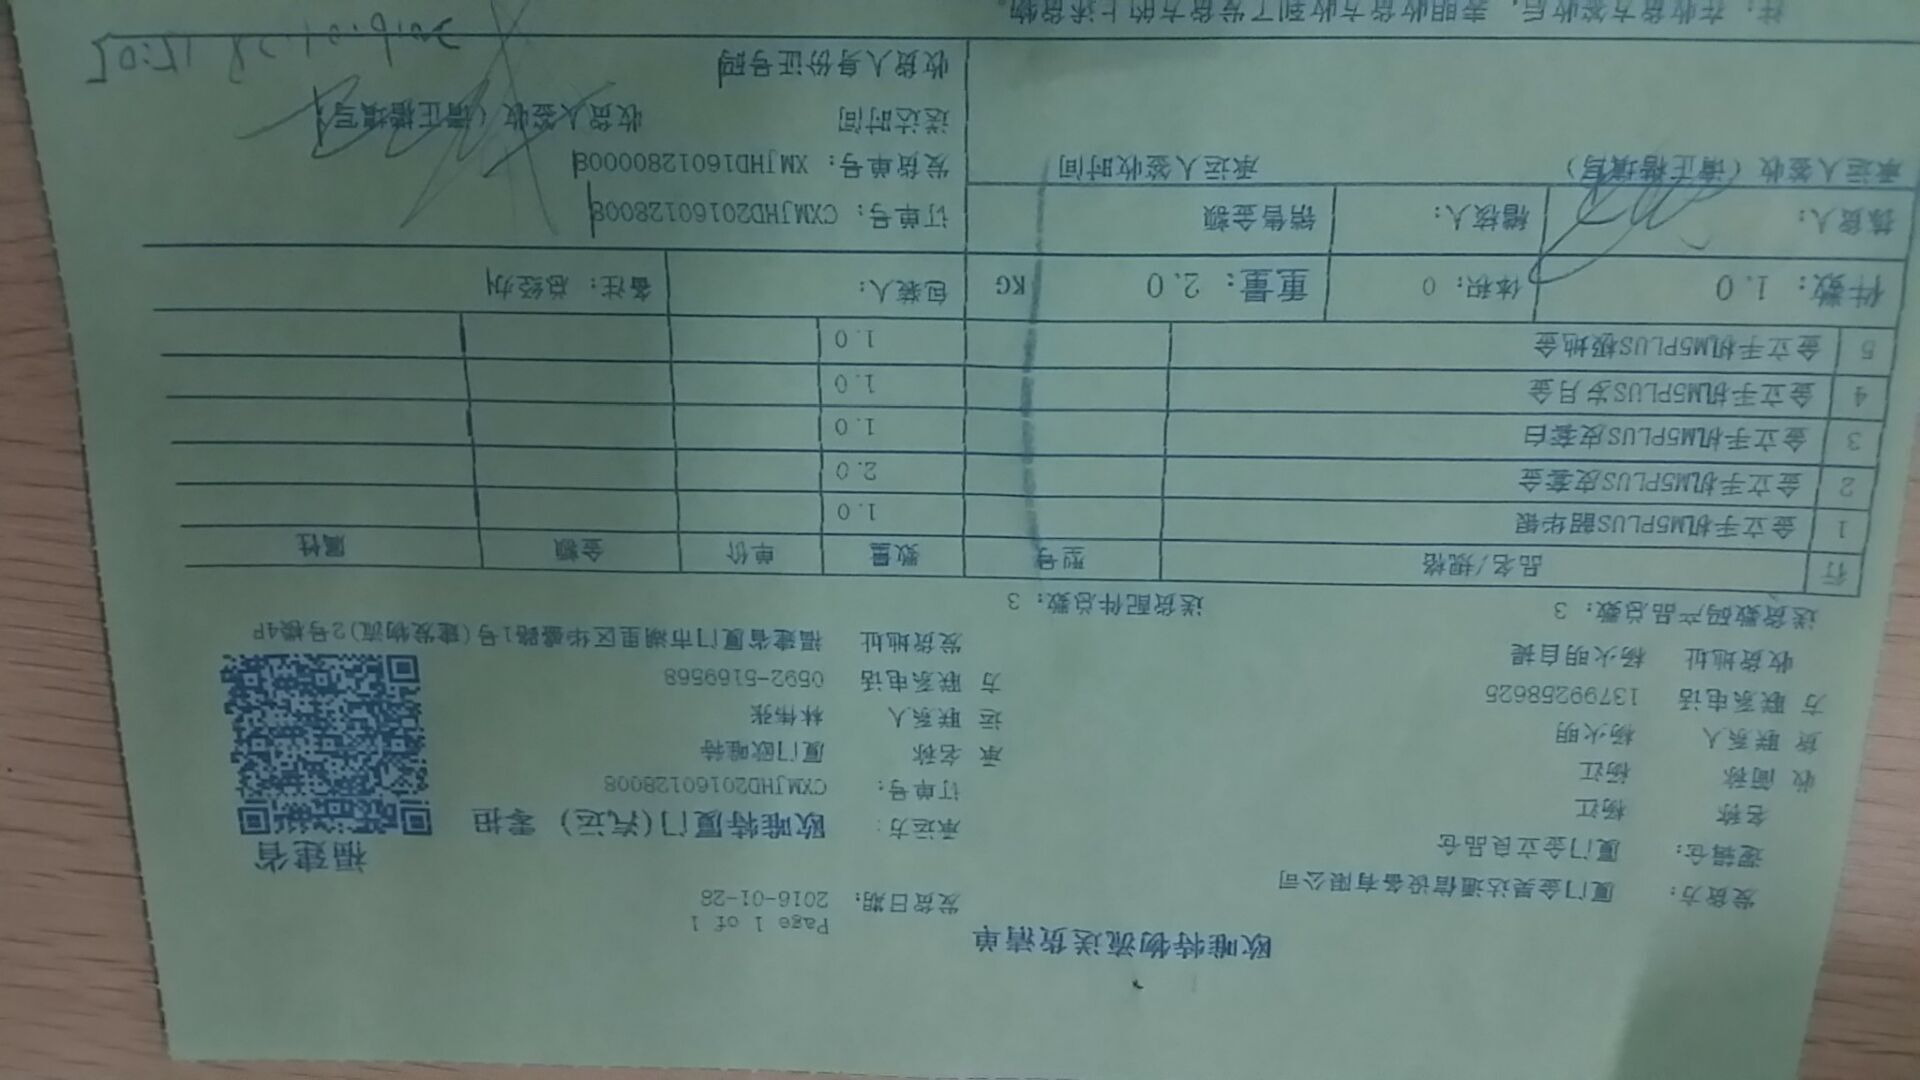 欧唯特物流送货清单
Page 1 of 1
发货方： 厦门金昊达通信设备有限公司 发货日期： 2016-01-28
逻辑仓： 厦门金立良品仓 福建省
名称 杨江 承运方： 欧唯特厦门(汽运) 零担
收 简称 杨江 订单号： CXMJHD20160128008
货 联系人 杨火明 承 名称 厦门欧唯特
方 联系电话 13799258625 运 联系人 林伟张
收货地址 杨火明自提 方 联系电话 0592-5169568
发货地址 福建省厦门市湖里区华盛路1号(建发物流)2号楼4P
送货数码产品总数： 3 送货配件总数： 3
行 品名/规格 型号 数量 单价 金额 属性
1 金立手机M5PLUS韶华银 1.0
2 金立手机M5PLUS皮套金 2.0
3 金立手机M5PLUS皮套白 1.0
4 金立手机M5PLUS岁月金 1.0
5 金立手机M5PLUS极地金 1.0
件数： 1.0 体积： 0 重量： 2.0 KG 包装人： 备注： 总经办
拣货人： 稽核人： 销售金额 订单号： CXMJHD20160128008
发货单号： XMJHD16012800008
承运人签收（请正楷填写） 承运人签收时间 送达时间 收货人签收（请正楷填写）
收货人身份证号码
注： 在收货方签收后， 表明收货方收到了发货方的上述货物。